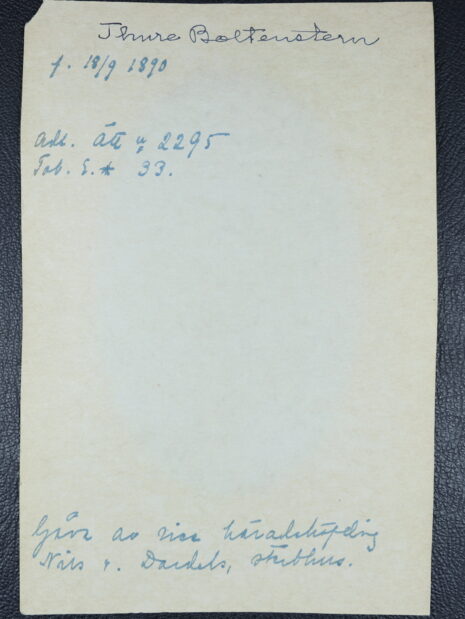 Thure Boltenstern
f. 18/9 1890
Adl. Ätt n 2295
Tab. 33.
Gåva av vice häradshövding
Nils v. Dardels, sterbhus.